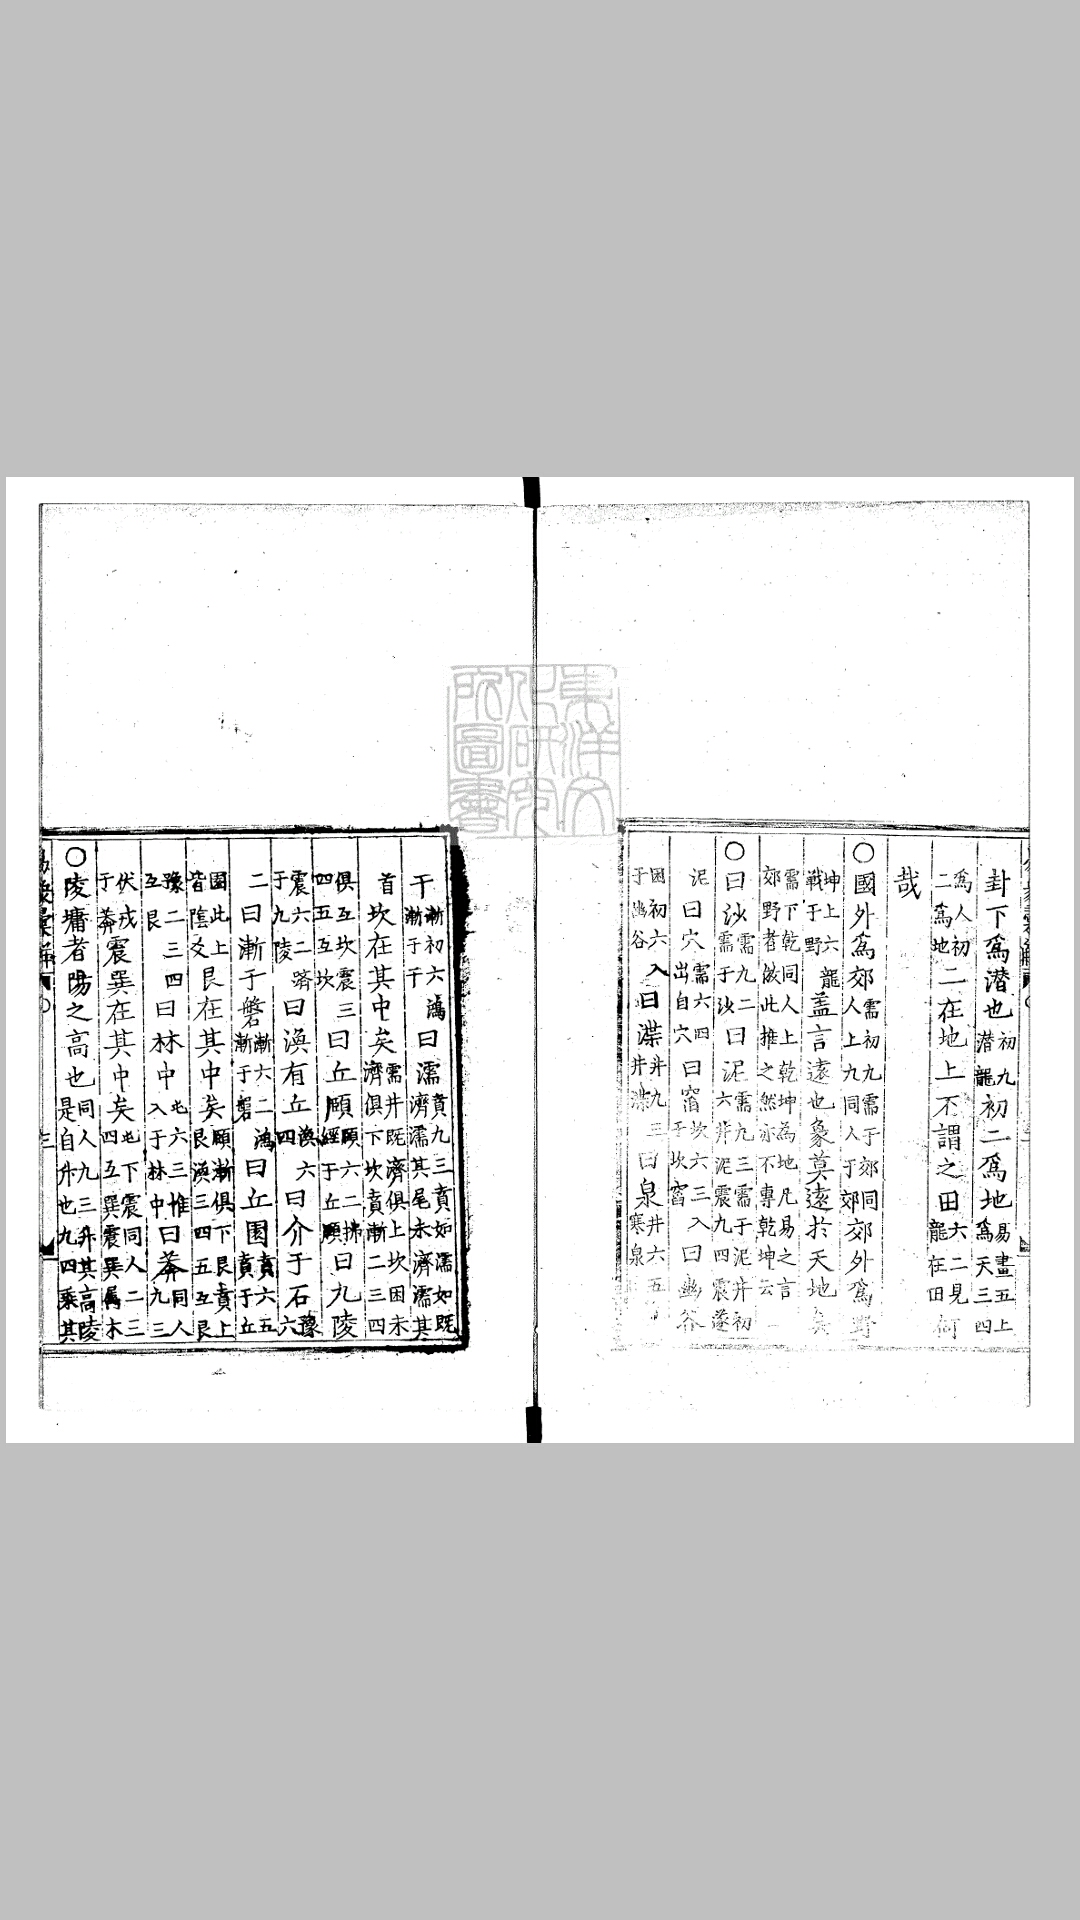 卦下爲潛也初九潛龍初二爲地易畫五上爲天三四
爲人初二爲地二在地上不謂之田六二見龍在田何
哉
○國外爲郊需初九需于郊同人上九同人于郊郊外爲野
坤上六龍戰于野盖言遠也象莫遠於天地矣
需下乾同人上乾坤為地凡易之言郊野者倣此推之然亦不專乾坤云
○曰沙需九二需于沙曰泥需九三需于泥井初六井泥震九四震遂
泥曰穴需六四出自穴曰窞坎六三入于坎窞曰幽谷
困初六入于幽谷曰渫井九三井渫曰泉井六五寒泉
干漸初六鴻漸于干曰濡濟賁九三賁如濡如既濟濡其尾未濟濡其
首坎在其中矣需井既濟俱上坎困未濟俱下坎賁漸二三四
俱互坎震三四五互坎曰丘頤頤六二拂經于丘頤曰九陵
震六二躋于九陵曰渙有丘渙六四曰介于石豫六
二曰漸于磐漸六二鴻漸于磐曰丘園賁六五賁于丘
園此上皆陰爻艮在其中矣頤漸俱下艮賁上艮渙三四五互艮
豫二三四互艮曰林中屯六三惟入于林中曰莽同人九三
伏戎于莽震巽在其中矣屯下震同人二三四五巽震巽屬木
○陵墉者陽之高也同人九三升其高陵是自升也九四乘其